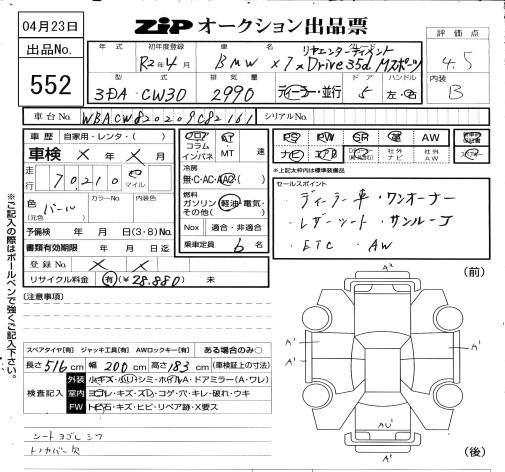 04月23日 ZIP オークション出品票
出品No. 552
年式 初年度登録 車名 グレード 評価点
R2年4月 BMW X7 xDrive35d Mスポーツ 4.5
リヤエンターテイメント
型式 排気量 ドア ハンドル 内装
3DA-CW30 2990 ディーラー・並行 5 左・右 B
車台No. シリアルNo.
車歴 自家用・レンタ・( )
車検 × 年 × 月
走行 70210 km マイル
色(元色) パール カラーNo. 内装色
予備検 年 月 日(3・8)No.
書類有効期限 年 月 日迄
登録No. × ×
リサイクル料金 有(¥28.880) 未
フロア コラム インパネ AT MT 速
冷房
無・C・AC・AAC
燃料
ガソリン 軽油・電気・その他( )
Nox 適合・非適合
乗車定員 6 名
PS PW SR 革 AW
ナビ エアB 社外ナビ 社外AW
*上記太枠内は標準装備品
セールスポイント
・ディーラー車・ワンオーナー
・レザーシート・サンルーフ
・ETC ・AW
※ご記入の際はボールペンで強くご記入下さい。
(注意事項)
スペアタイヤ[有] ジャッキ工具[有] AWロックキー[有] ある場合のみ○
長さ 516 cm 幅 200 cm 高さ 183 cm (車検証上の寸法)
検査記入
外装 小キズ・小凹・シミ・ホイルA・ドアミラー(A・ワレ)
室内 ヨゴレ・キズ・スレ・コゲ・穴・キレ・破れ・ウキ
FW トビ石・キズ・ヒビ・リペア跡・X要ス
シートヨゴレシワ
トノカバー欠
(前)
A²
A¹
A¹
A¹
AU¹
A¹
(後)